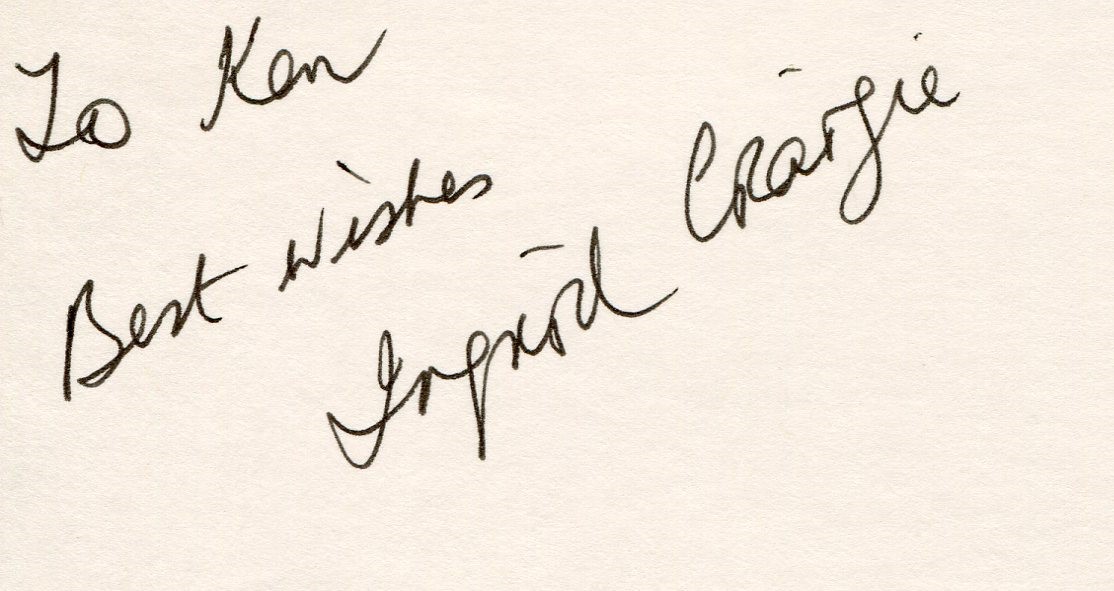 To Ken
Best wishes
Ingrid Craigie